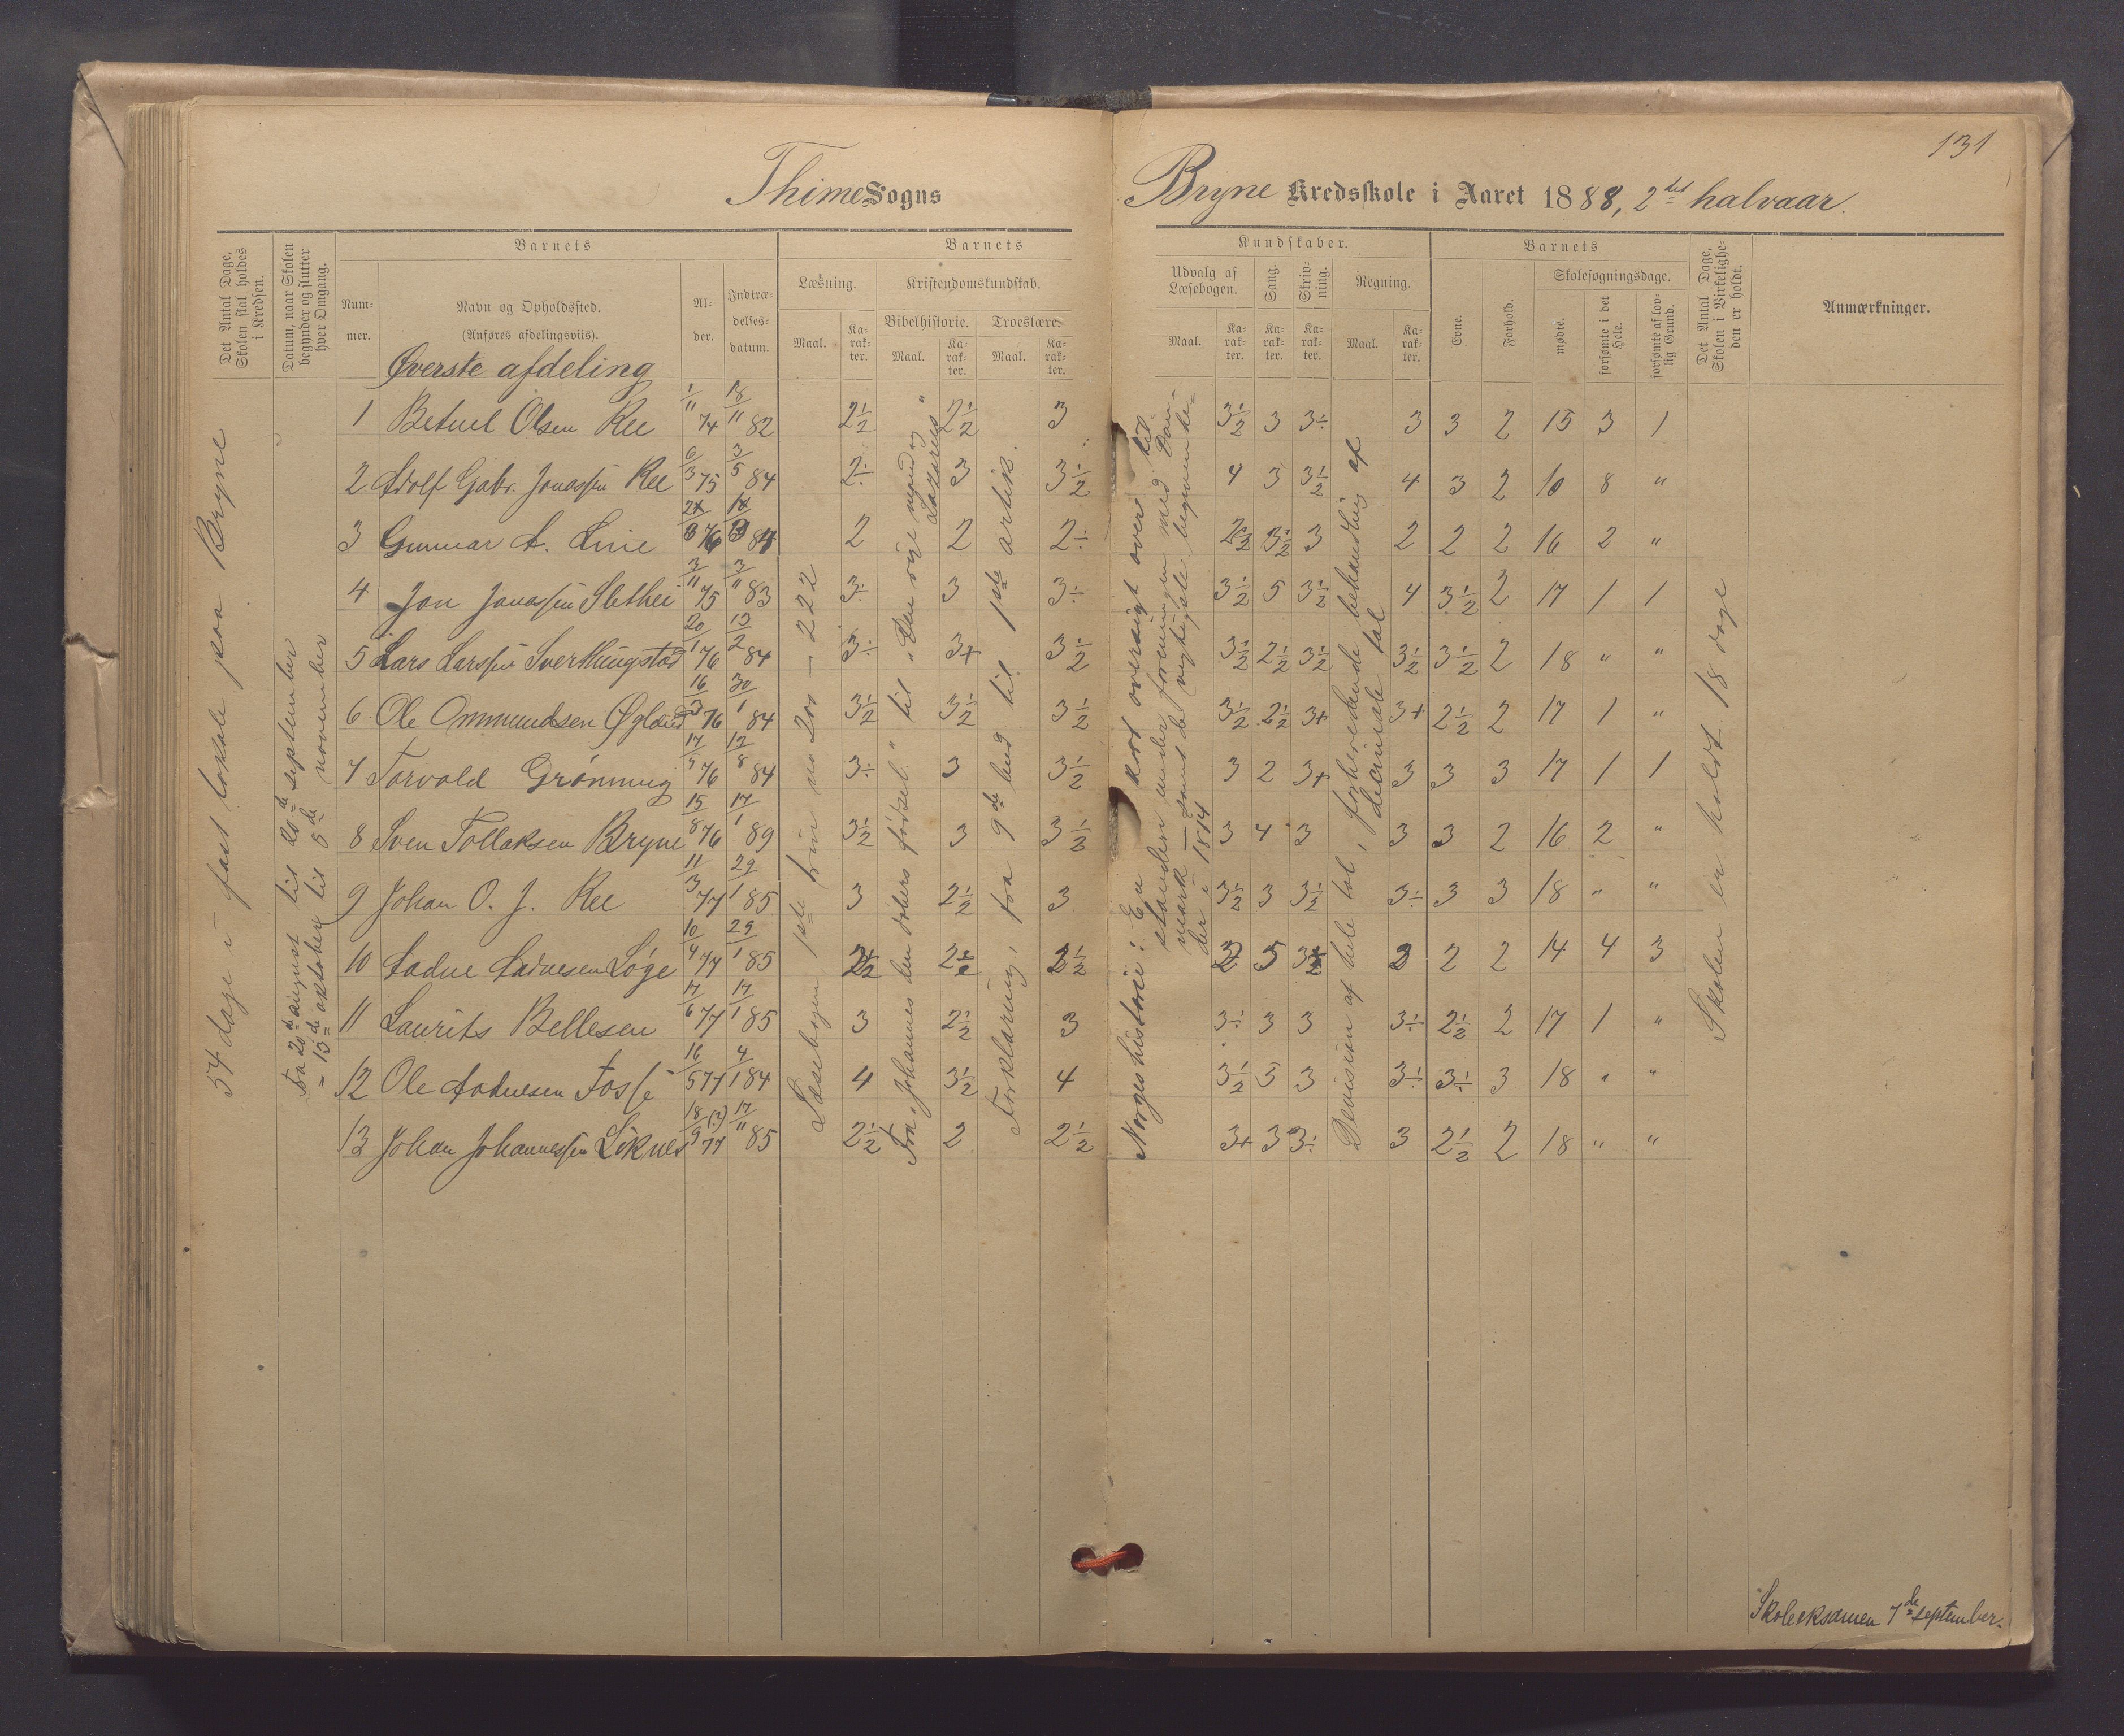 131
Thime Sogns
Bryne Kredsskole i Aaret 1888, 2det halvaar.
Det Antal Dage, Skolen skal holdes i Kredsen.
Datum, naar Skolen begynder og slutter hver Omgang.
Barnets
Barnets
Kundskaber.
Barnets
Det Antal Dage, Skolen i Virkeligheden er holdt.
Anmærkninger.
Num-mer.
Navn og Opholdssted.
(Anføres afdelingsviis).
Al-der.
Indtræ-delses-datum.
Læsning.
Kristendomskundskab.
Bibelhistorie.
Troeslære.
Udvalg af Læsebogen.
Sang.
Skriv-ning.
Regning.
Evne.
Forhold.
Skolesøgningsdage.
Maal.
Ka-rak-ter.
Maal.
Ka-rak-ter.
Maal.
Ka-rak-ter.
Maal.
Ka-rak-ter.
Ka-rak-ter.
Ka-rak-ter.
Maal.
Ka-rak-ter.
mødte.
forsømte i det Hele.
forsømte af lov-lig Grund.
Øverste afdeling
54 dage i fast lokale paa Bryne
Fra 20de august til 20de september
= 15de oktober til 5de november
Læsebogen 1ste trin no 200 – 222
Fra „Johannes den døbers fødsel" til „Den rige mand og Lazarus"
Forklaring, fra 9de bud til 1ste artik.
Norges historie: En kort oversigt over til-
standen under foreningen med Dan-
mark – samt de vigtigste begivenhe-
der i 1814
Devision af hele tal, forberedende behandling af
decimale tal
Skolen er holdt 18 dage
1 Betuel Olsen Ree 1/11 74 18/11 82 2½ 2½ 3 3½ 3 3÷ 3 3 2 15 3 1
2 Adolf Gabr. Jonassen Ree 6/3 75 3/5 84 2÷ 3 3½ 4 3 3½ 4 3 2 10 8 "
3 Gunnar A. Line 76 84 2 2 2÷ 2½ 3½ 3 2 2 2 16 2 "
4 Jon Jonassen Slethei 3/11 75 3/11 83 3÷ 3 3÷ 3½ 5 3½ 4 3½ 2 17 1 1
5 Lars Larssen Sverthingstad 20/1 76 13/2 84 3÷ 3+ 3½ 3½ 2½ 3½ 3½ 3½ 2 18 " "
6 Ole Ommundsen Øgland 16/3 76 30/1 84 3½ 3½ 3½ 3½ 2½ 3+ 3+ 2½ 2 17 1 "
7 Torvald Grønning 17/5 76 12/8 84 3÷ 3 3½ 3 2 3+ 3 3 3 17 1 1
8 Sven Tollaksen Bryne 15/8 76 17/1 89 3½ 3 3½ 3 4 3 3 3 2 16 2 "
9 Johan O. J. Ree 11/3 77 29/1 85 3 2½ 3 3½ 3 3½ 3÷ 3 3 18 " "
10 Aadne Aadnesen Løge 10/4 77 29/1 85 2½ 2½ 2½ 2 5 3½ 3 2 2 14 4 3
11 Laurits Bellesen 17/6 77 17/1 85 3 2½ 3 3÷ 3 3 3÷ 2½ 2 17 1 "
12 Ole Aadnesen Fosse 16/5 77 4/1 84 4 3½ 4 3½ 5 3 3÷ 3÷ 3 18 " "
13 Johan Johannessen Liknes 18/9 (?) 77 17/11 85 2½ 2 2½ 3+ 3 3÷ 3 2½ 2 18 " "
Skoleeksamen 7de september.